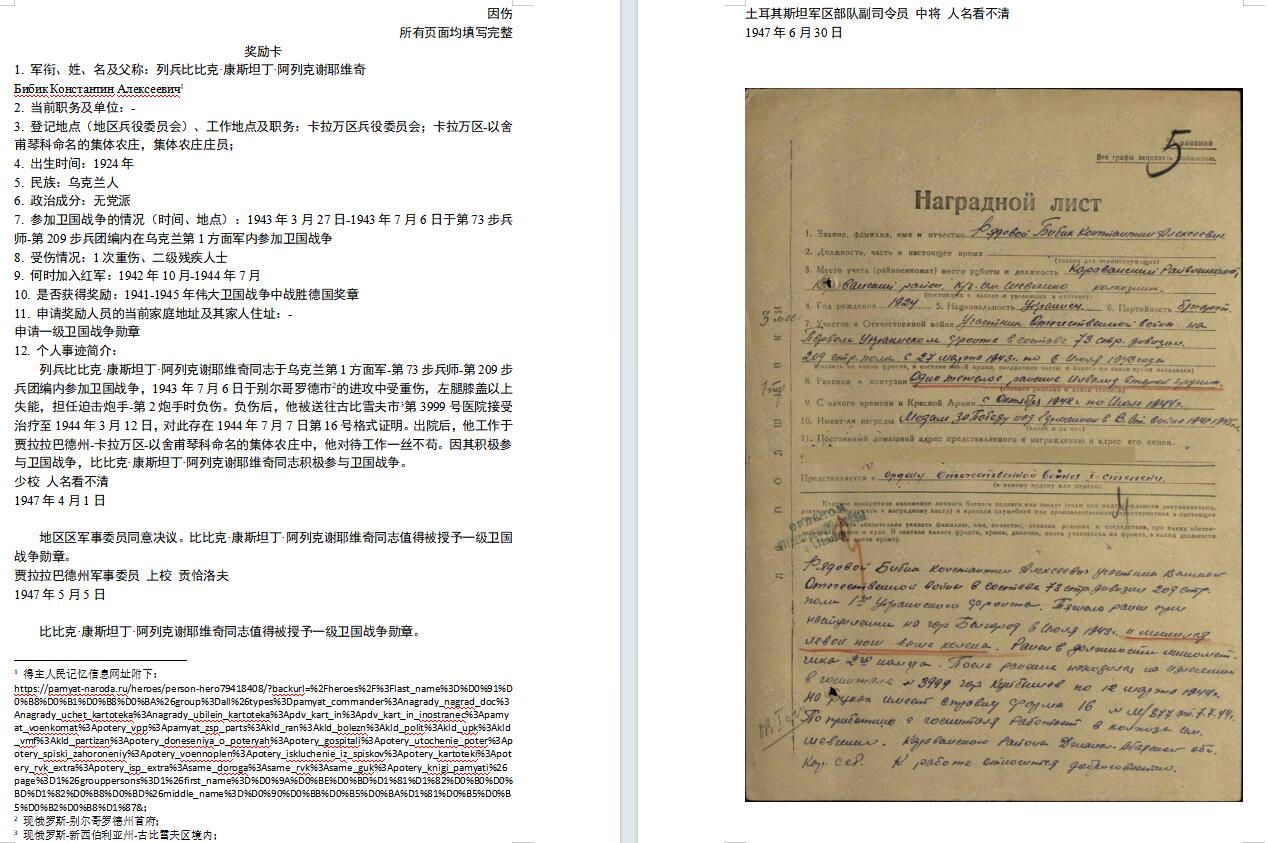 因伤
所有页面均填写完整
奖励卡
1. 军衔、姓、名及父称：列兵比比克·康斯坦丁·阿列克谢耶维奇
Бибик Константин Алексеевич¹
2. 当前职务及单位：-
3. 登记地点（地区兵役委员会）、工作地点及职务：卡拉万区兵役委员会；卡拉万区-以舍
甫琴科命名的集体农庄，集体农庄庄员；
4. 出生时间：1924 年
5. 民族：乌克兰人
6. 政治成分：无党派
7. 参加卫国战争的情况（时间、地点）：1943 年 3 月 27 日-1943 年 7 月 6 日于第 73 步兵
师-第 209 步兵团编内在乌克兰第 1 方面军内参加卫国战争
8. 受伤情况：1 次重伤、二级残疾人士
9. 何时加入红军：1942 年 10 月-1944 年 7 月
10. 是否获得奖励：1941-1945 年伟大卫国战争中战胜德国奖章
11. 申请奖励人员的当前家庭地址及其家人住址：-
申请一级卫国战争勋章
12. 个人事迹简介：
列兵比比克·康斯坦丁·阿列克谢耶维奇同志于乌克兰第 1 方面军-第 73 步兵师-第 209 步
兵团编内参加卫国战争，1943 年 7 月 6 日于别尔哥罗德市²的进攻中受重伤，左腿膝盖以上
失能，担任迫击炮手-第 2 炮手时负伤。负伤后，他被送往古比雪夫市³第 3999 号医院接受
治疗至 1944 年 3 月 12 日，对此存在 1944 年 7 月 7 日第 16 号格式证明。出院后，他工作于
贾拉拉巴德州-卡拉万区-以舍甫琴科命名的集体农庄中，他对待工作一丝不苟。因其积极参
与卫国战争，比比克·康斯坦丁·阿列克谢耶维奇同志积极参与卫国战争。
少校 人名看不清
1947 年 4 月 1 日
地区区军事委员同意决议。比比克·康斯坦丁·阿列克谢耶维奇同志值得被授予一级卫国
战争勋章。
贾拉拉巴德州军事委员 上校 贡恰洛夫
1947 年 5 月 5 日
比比克·康斯坦丁·阿列克谢耶维奇同志值得被授予一级卫国战争勋章。
¹ 得主人民记忆信息网址附下：
https://pamyat-naroda.ru/heroes/person-hero79418408/?backurl=%2Fheroes%2F%3Flast_name%3D%D0%91%D
0%B8%D0%B1%D0%B8%D0%BA%26group%3Dall%26types%3Dpamyat_commander%3Anagrady_nagrad_doc%3
Anagrady_uchet_kartoteka%3Anagrady_ubilein_kartoteka%3Apdv_kart_in%3Apdv_kart_in_inostranec%3Apamy
at_voenkomat%3Apotery_vpp%3Apamyat_zsp_parts%3Akld_ran%3Akld_bolezn%3Akld_polit%3Akld_upk%3Akld
_vmf%3Akld_partizan%3Apotery_doneseniya_o_poteryah%3Apotery_gospitali%3Apotery_utochenie_poter%3Ap
otery_spiski_zahoroneniy%3Apotery_voennoplen%3Apotery_iskluchenie_iz_spiskov%3Apotery_kartoteki%3Apot
ery_rvk_extra%3Apotery_isp_extra%3Asame_doroga%3Asame_rvk%3Asame_guk%3Apotery_knigi_pamyati%26
page%3D1%26grouppersons%3D1%26first_name%3D%D0%9A%D0%BE%D0%BD%D1%81%D1%82%D0%B0%D0%
BD%D1%82%D0%B8%D0%BD%26middle_name%3D%D0%90%D0%BB%D0%B5%D0%BA%D1%81%D0%B5%D0%B
5%D0%B2%D0%B8%D1%87&;
² 现俄罗斯-别尔哥罗德州首府；
³ 现俄罗斯-新西伯利亚州-古比雪夫区境内；
土耳其斯坦军区部队副司令员 中将 人名看不清
1947 年 6 月 30 日
5
Все графы заполнять полностью.
Наградной лист
1. Звание, фамилия, имя и отчество Рядовой Бибик Константин Алексеевич
2. Должность, часть и настоящее время
3. Место учета (райвоенкомат) место работы и должность Караванский Райвоенкомат,
район. К/з. им. Шевченко колхозник.
4. Год рождения 1924 5. Национальность Украинец 6. Партийность
7. Участие в Отечественной войне Участник Отечественной войны на
Первом Украинском фронте в составе 73 стр. дивизии.
209 стр. полк с 27 марта 1943г. по 6 Июля 1943 года
8. Ранения и контузии Одно тяжелое ранение Инвалид второй группы.
9. С какого времени в Красной Армии с Октября 1942г по Июль 1944г.
10. Имеет-ли награды Медаль За Победу над Германией в В. От. войне
11. Постоянный домашний адрес представляемого к награждению и адрес его семьи
Представляется к ордену Отечественной войны I степени.
Рядовой Бибик Константин Алексеевич участник Великой
Отечественной войны в составе 73 стр. дивизии 209 стр.
полк 1го Украинского фронта. Тяжело ранен при
наступлении на гор Белгород 6 Июля 1943г.
левой ноги выше колена. Ранен в должности миномет-
чика 2го номера. После ранения находился на излечении
в госпитале № 3999 гор Куйбышев по 12 марта 1944г.
На руках имеет справку форма 16 от 7.7.44.
По прибытию с госпиталя Работает в колхозе им.
Шевченко. Караванского Района
К работе относится добросовестно.